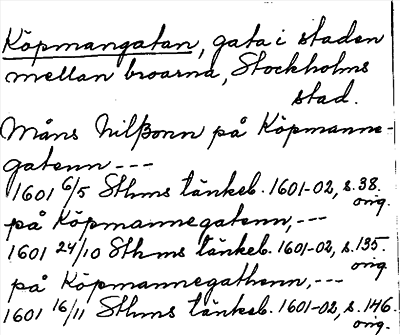 Köpmangatan, gata i staden
mellan broarna, Stockholms
stad.
Måns Nilßonn på Köpmanne-
gatenn ---
1601 6/5 Sthms tänkeb. 1601-02, s. 38.
orig.
på Köpmannegatenn, ---
1601 24/10 Sthms tänkeb. 1601-02, s. 135.
orig.
på Köpmannegathenn, ---
1601 16/11 Sthms tänkeb. 1601-02, s. 146.
orig.